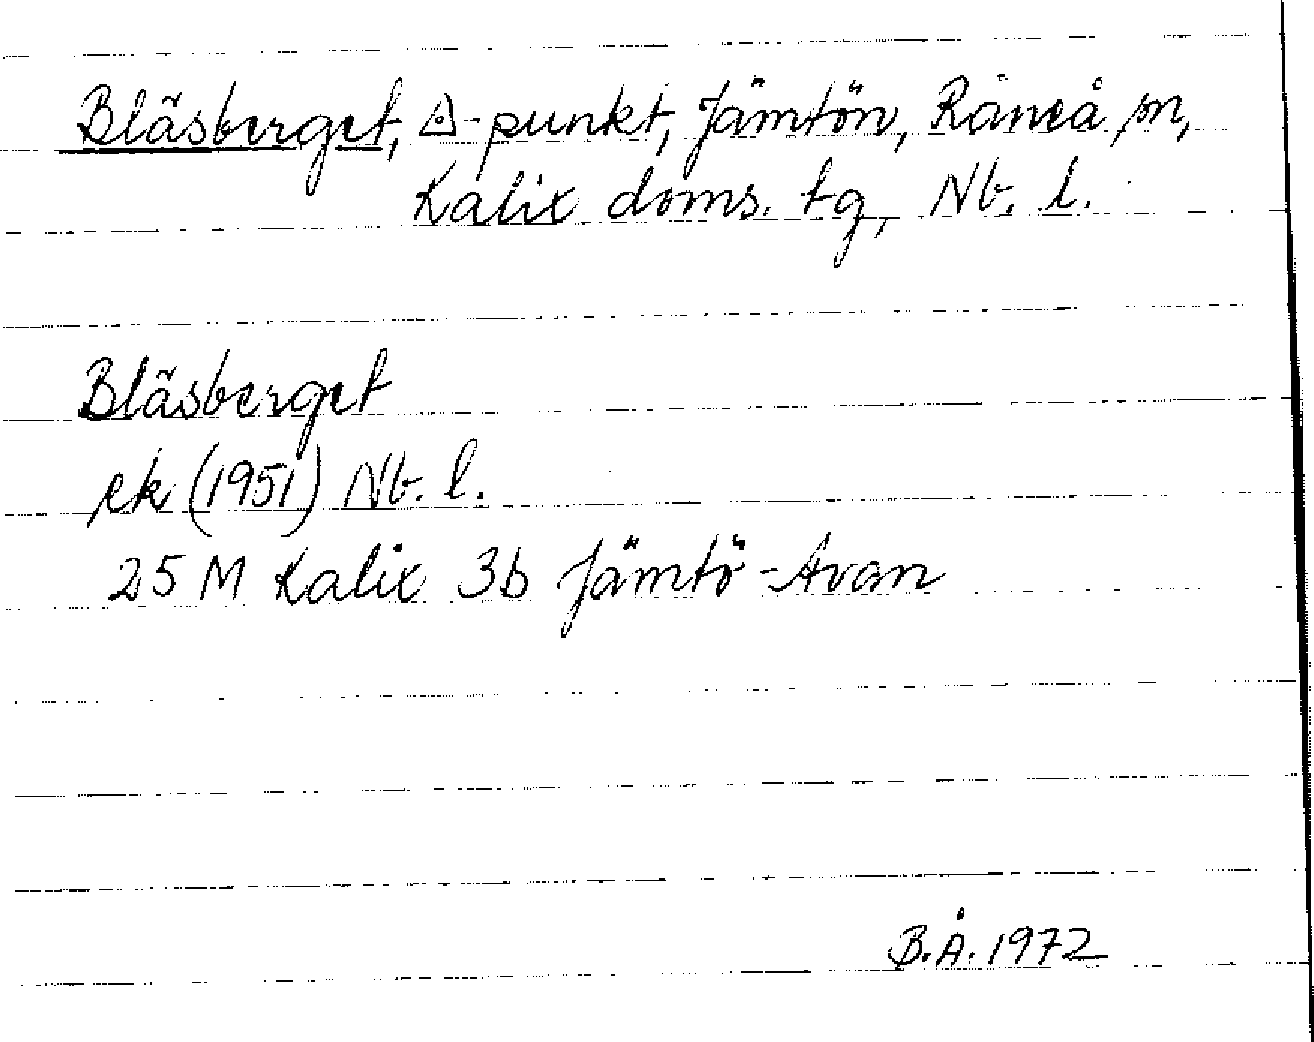 Blåsberget, ◬-punkt, Jämtön, Råneå sn,
Kalix doms. tg, Nb. l.
Blåsberget
ek (1951) Nb. l.
25 M Kalix 3b Jämtö-Avan
B.Å. 1972